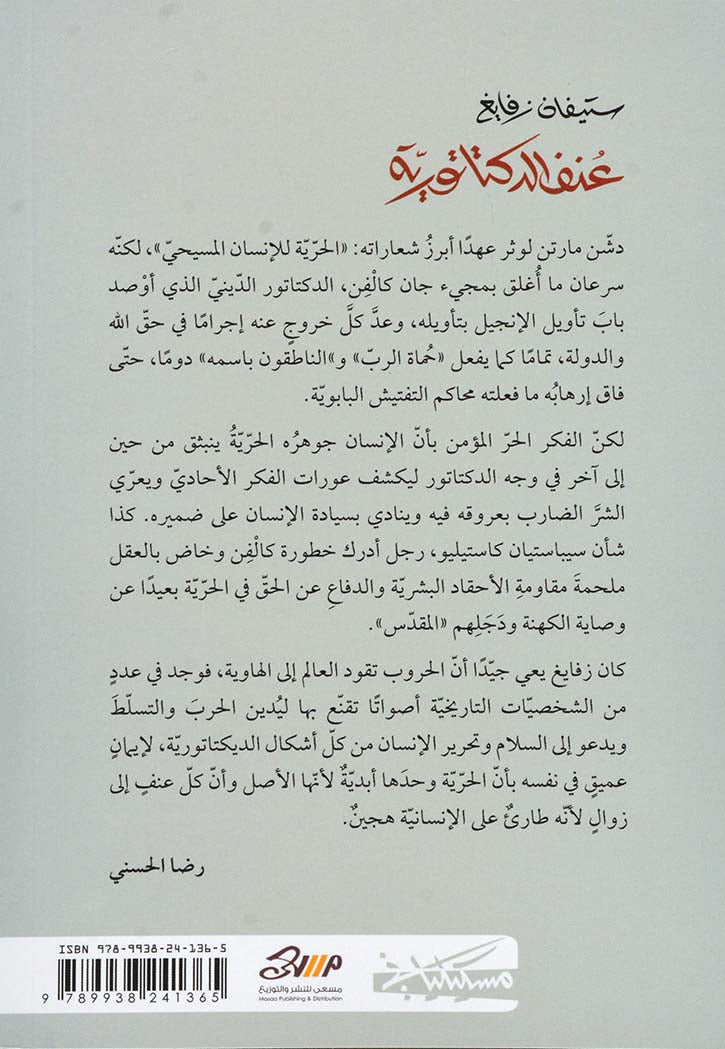 ستيفان زفايغ
عُنف الدكتاتوريّة
دشّن مارتن لوثر عهدًا أبرزُ شعاراته: «الحرّيّة للإنسان المسيحيّ»، لكنّه
سرعان ما أُغلق بمجيء جان كالْفِن، الدكتاتور الدّينيّ الذي أوْصد
بابَ تأويل الإنجيل بتأويله، وعدَّ كلَّ خروجٍ عنه إجرامًا في حقّ الله
والدولة، تمامًا كما يفعل «حُماة الربّ» و»الناطقون باسمه» دومًا، حتّى
فاق إرهابُه ما فعلته محاكم التفتيش البابويّة.
لكنّ الفكر الحرّ المؤمن بأنّ الإنسان جوهرُه الحرّيّةُ ينبثق من حين
إلى آخر في وجه الدكتاتور ليكشف عورات الفكر الأحاديّ ويعرّي
الشرَّ الضارب بعروقه فيه وينادي بسيادة الإنسان على ضميره. كذا
شأن سيباستيان كاستيليو، رجل أدرك خطورة كالْفِن وخاض بالعقل
ملحمةَ مقاومةِ الأحقاد البشريّة والدفاعِ عن الحقّ في الحرّيّة بعيدًا عن
وصاية الكهنة ودَجَلِهم «المقدّس».
كان زفايغ يعي جيّدًا أنّ الحروب تقود العالم إلى الهاوية، فوجد في عددٍ
من الشخصيّات التاريخيّة أصواتًا تقنّع بها ليُدين الحربَ والتسلّطَ
ويدعو إلى السلام وتحرير الإنسان من كلّ أشكال الديكتاتوريّة، لإيمانٍ
عميقٍ في نفسه بأنّ الحرّيّة وحدَها أبديّةٌ لأنّها الأصل وأنّ كلّ عنفٍ إلى
زوالٍ لأنّه طارئٌ على الإنسانيّة هجينٌ.
رضا الحسني
ISBN 978-9938-24-136-5
9 789938 241365
مسعى
مسعى للنشر والتوزيع
Masaa Publishing & Distribution
مسكيلياني